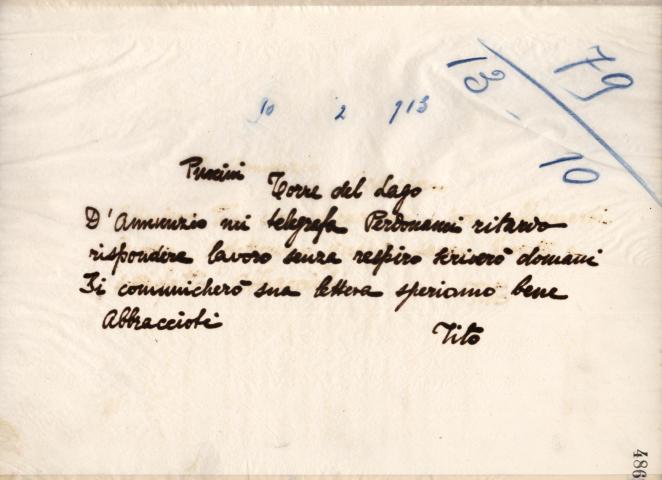 79
13 - 10
10 2 913
Puccini
Torre del Lago
D'Annunzio mi telegrafa Perdonami ritardo
rispondere lavoro senza respiro scriverò domani
Ti comunicherò sua lettera speriamo bene
Abbraccioti
Tito
486